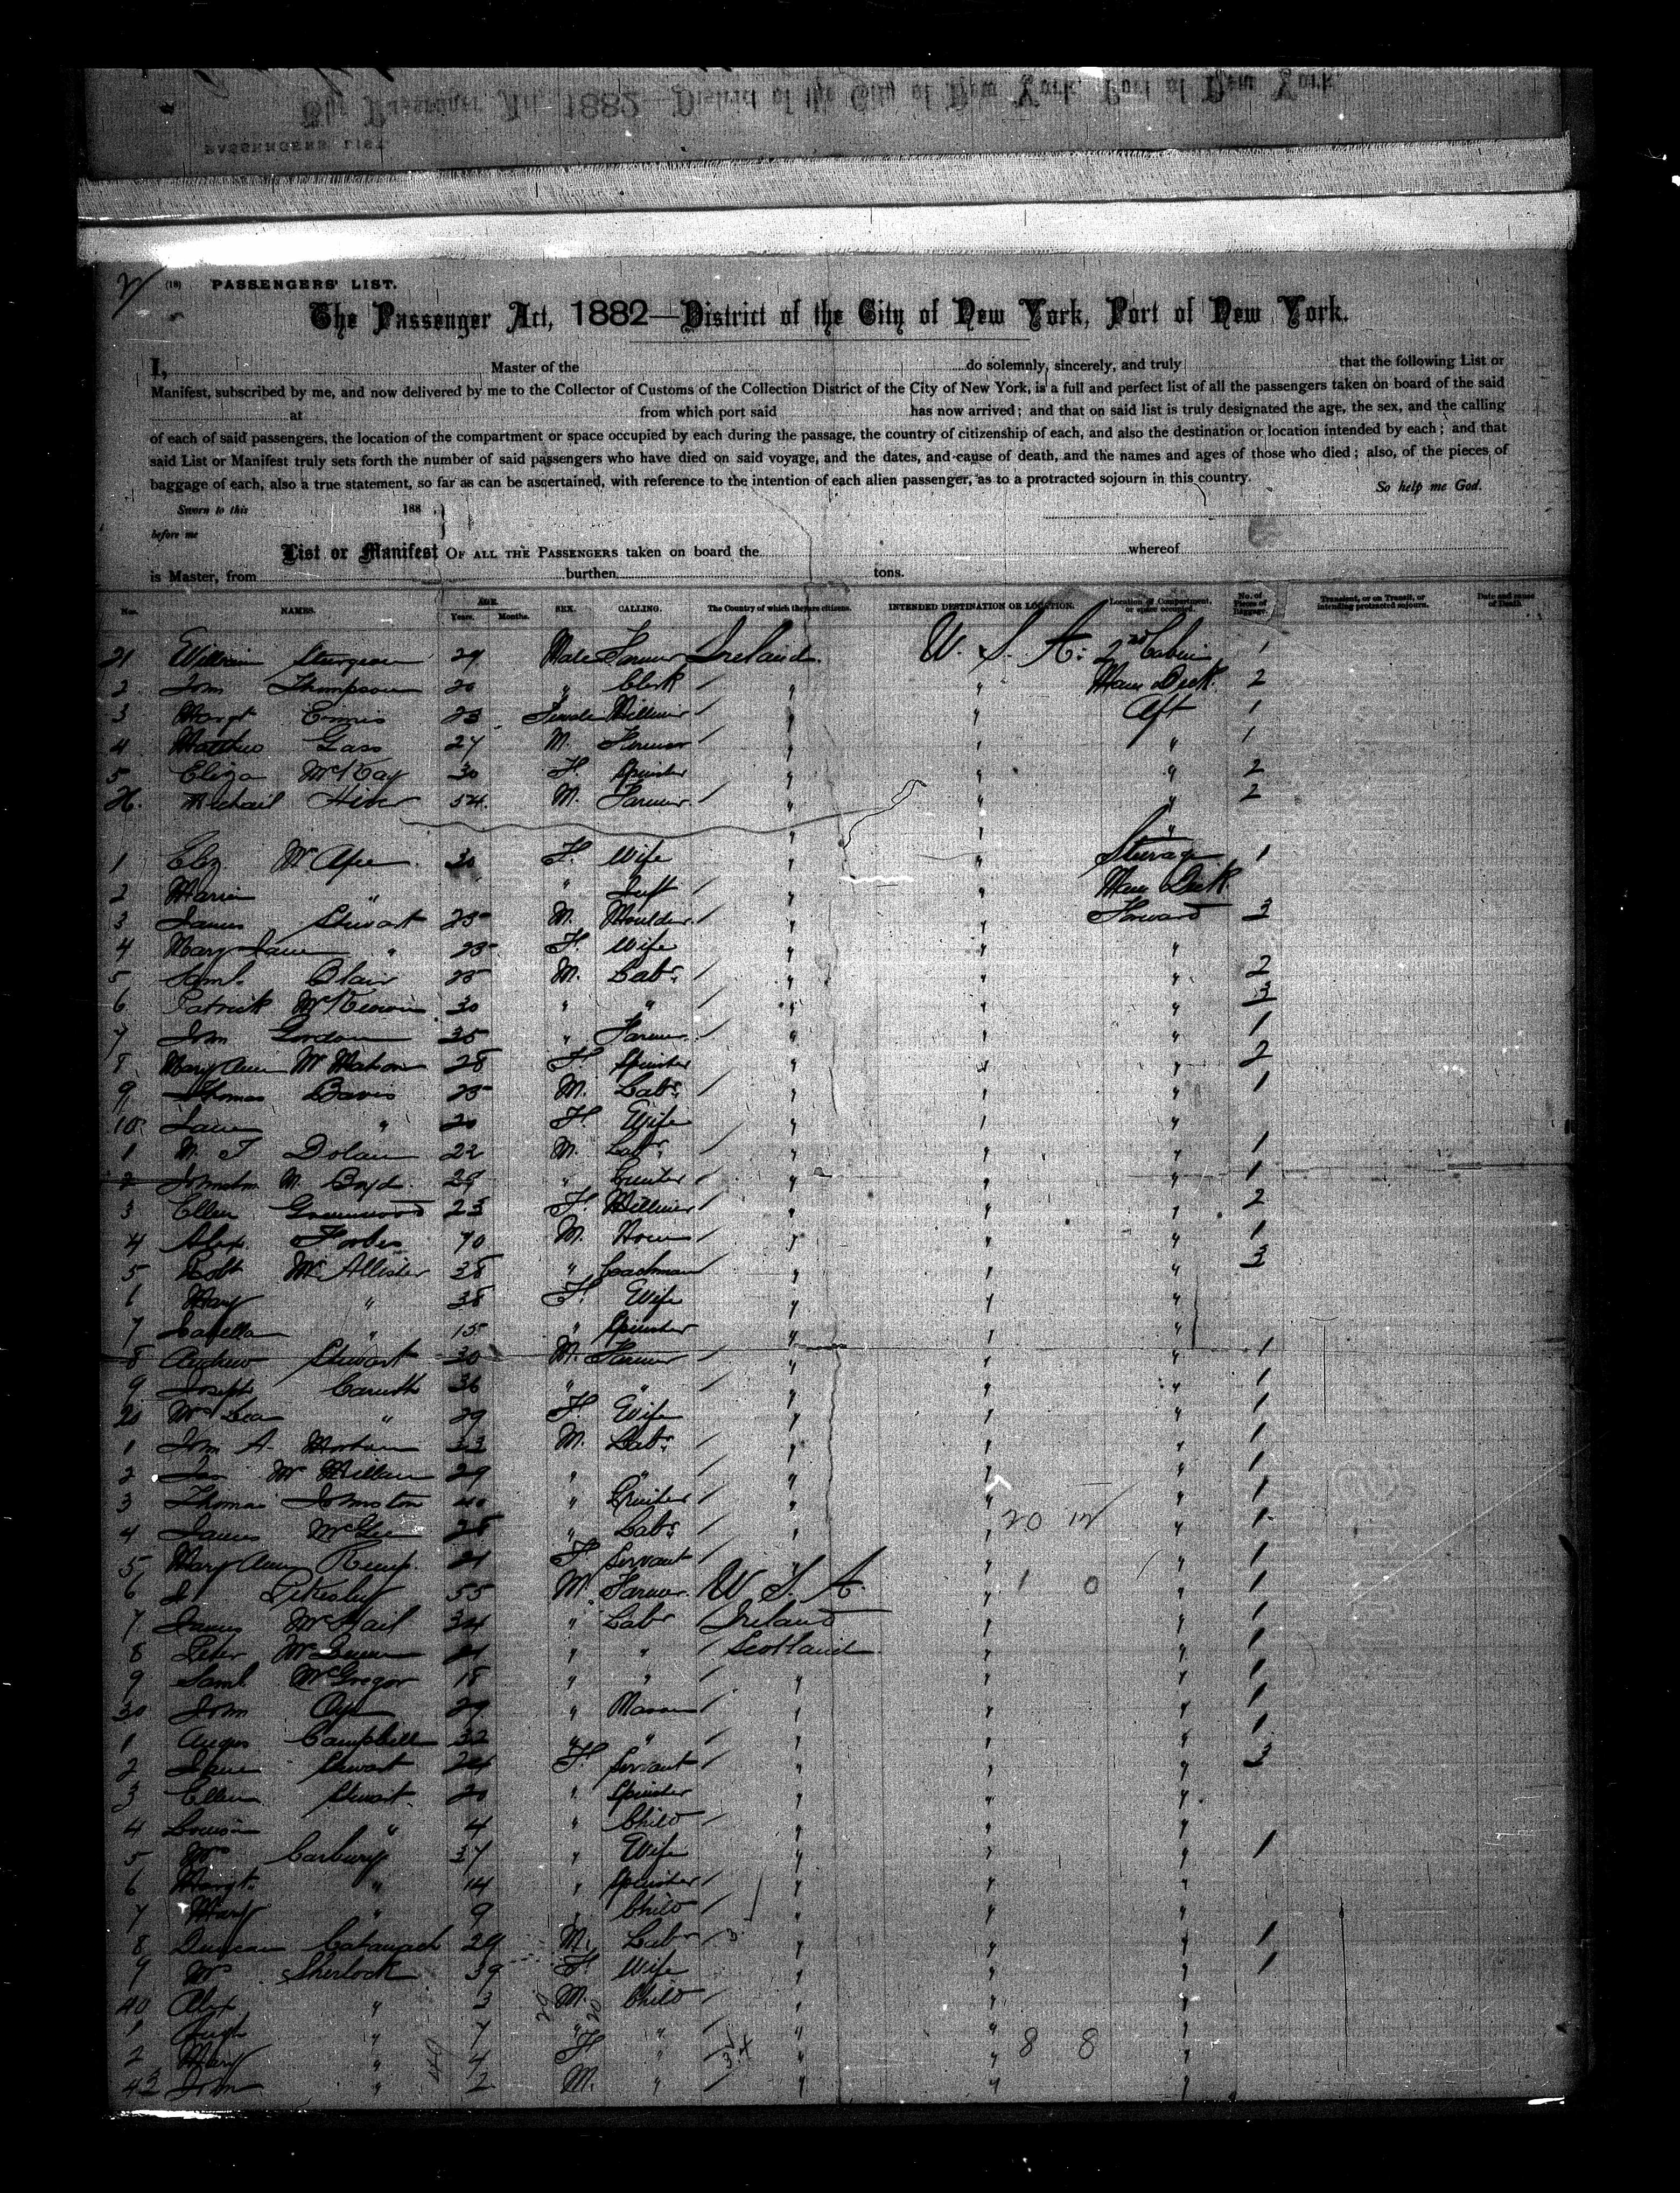 (18) PASSENGERS' LIST.
The Passenger Act, 1882—District of the City of New York, Port of New York.
I, Master of the do solemnly, sincerely, and truly that the following List or
Manifest, subscribed by me, and now delivered by me to the Collector of Customs of the Collection District of the City of New York, is a full and perfect list of all the passengers taken on board of the said
at from which port said has now arrived; and that on said list is truly designated the age, the sex, and the calling
of each of said passengers, the location of the compartment or space occupied by each during the passage, the country of citizenship of each, and also the destination or location intended by each; and that
said List or Manifest truly sets forth the number of said passengers who have died on said voyage, and the dates, and cause of death, and the names and ages of those who died; also, of the pieces of
baggage of each, also a true statement, so far as can be ascertained, with reference to the intention of each alien passenger, as to a protracted sojourn in this country. So help me God.
Sworn to this 188
before me
List or Manifest OF ALL THE PASSENGERS taken on board the whereof
is Master, from burthen tons.
Nos. NAMES. AGE. Years. Months. SEX. CALLING. The Country of which they are citizens. INTENDED DESTINATION OR LOCATION. Location of Compartment, or space occupied. No. of Pieces of Baggage. Transient, or on Transit, or intending protracted sojourn. Date and cause of Death
21 William Sturgeon 29 Male Farmer Ireland U. S. A. 2nd Cabin 1
2 John Thompson 20 " Clerk " " Main Deck 2
3 Margt Ennis 23 Female Milliner " " Aft 1
4 Matthew Gass 27 M. Farmer " " " 1
5 Eliza McKay 30 F. Spinster " " " 2
26. Michail 54 M. Farmer " " " 2
1 Eliz McAfee 30 F. Wife " " Steerage 1
2 " " Inft " " Main Deck
3 James Stewart 25 M. Moulder " " Forward 3
4 Mary Jane " 25 F. Wife " " "
5 Saml. Blair 25 M. Labr. " " " 2
6 Patrick McKeown 30 " " " " " 3
7 John Gordon 35 " Farmer " " " 1
8 Mary Ann 28 F. Spinster " " " 2
9 Thomas Davis 25 M. Labr. " " " 1
10 Jane " 20 F. Wife " " "
1 Dolan 22 M. Labr. " " " 1
2 Johnston Boyd 29 " " " " 1
3 Ellen Greenwood 23 F. Milliner " " " 2
4 Alex. Forbes 70 M. None " " " 1
5 Robt McAllister 38 " Coachman " " " 3
6 Mary " 38 F. Wife " " "
7 Isabella " 15 " Spinster " " "
8 Andrew Stewart 30 M. Farmer " " " 1
9 Joseph Caruth 36 " " " " " 1
20 " 29 F. Wife " " " 1
1 John A. 33 M. Labr. " " " 1
2 Jas McMillan 29 " " " " " 1
3 Thomas Johnston 40 " " " " 1
4 James McGee 28 " Labr. " " " 1
5 Mary Ann Kemp 21 F. Servant " " " 1
6 55 M. Farmer U. S. A. " " 1
7 James 34 " Labr Ireland " " 1
8 Peter McQueen 21 " " Scotland " " 1
9 Saml McGregor 18 " " " " " 1
30 John 29 " Mason " " " 1
1 Angus Campbell 32 " " " " " 1
2 Jane Stewart 24 F. Servant " " " 3
3 Ellen Stewart 20 " Spinster " " "
4 Louisa " 4 " Child " " "
5 Mrs Carbury 37 " Wife " " " 1
6 Margt. " 14 " Spinster " " "
7 Mary " 9 " Child " " "
8 Duncan 29 M. Labr " " " 1
9 Mrs Sherlock 39 F. Wife " " " 1
40 Alex " 3 M. Child " " "
1 Hugh " 7 " " " " "
2 Mary " 4 F " " " "
43 John " 2 M. " " " "